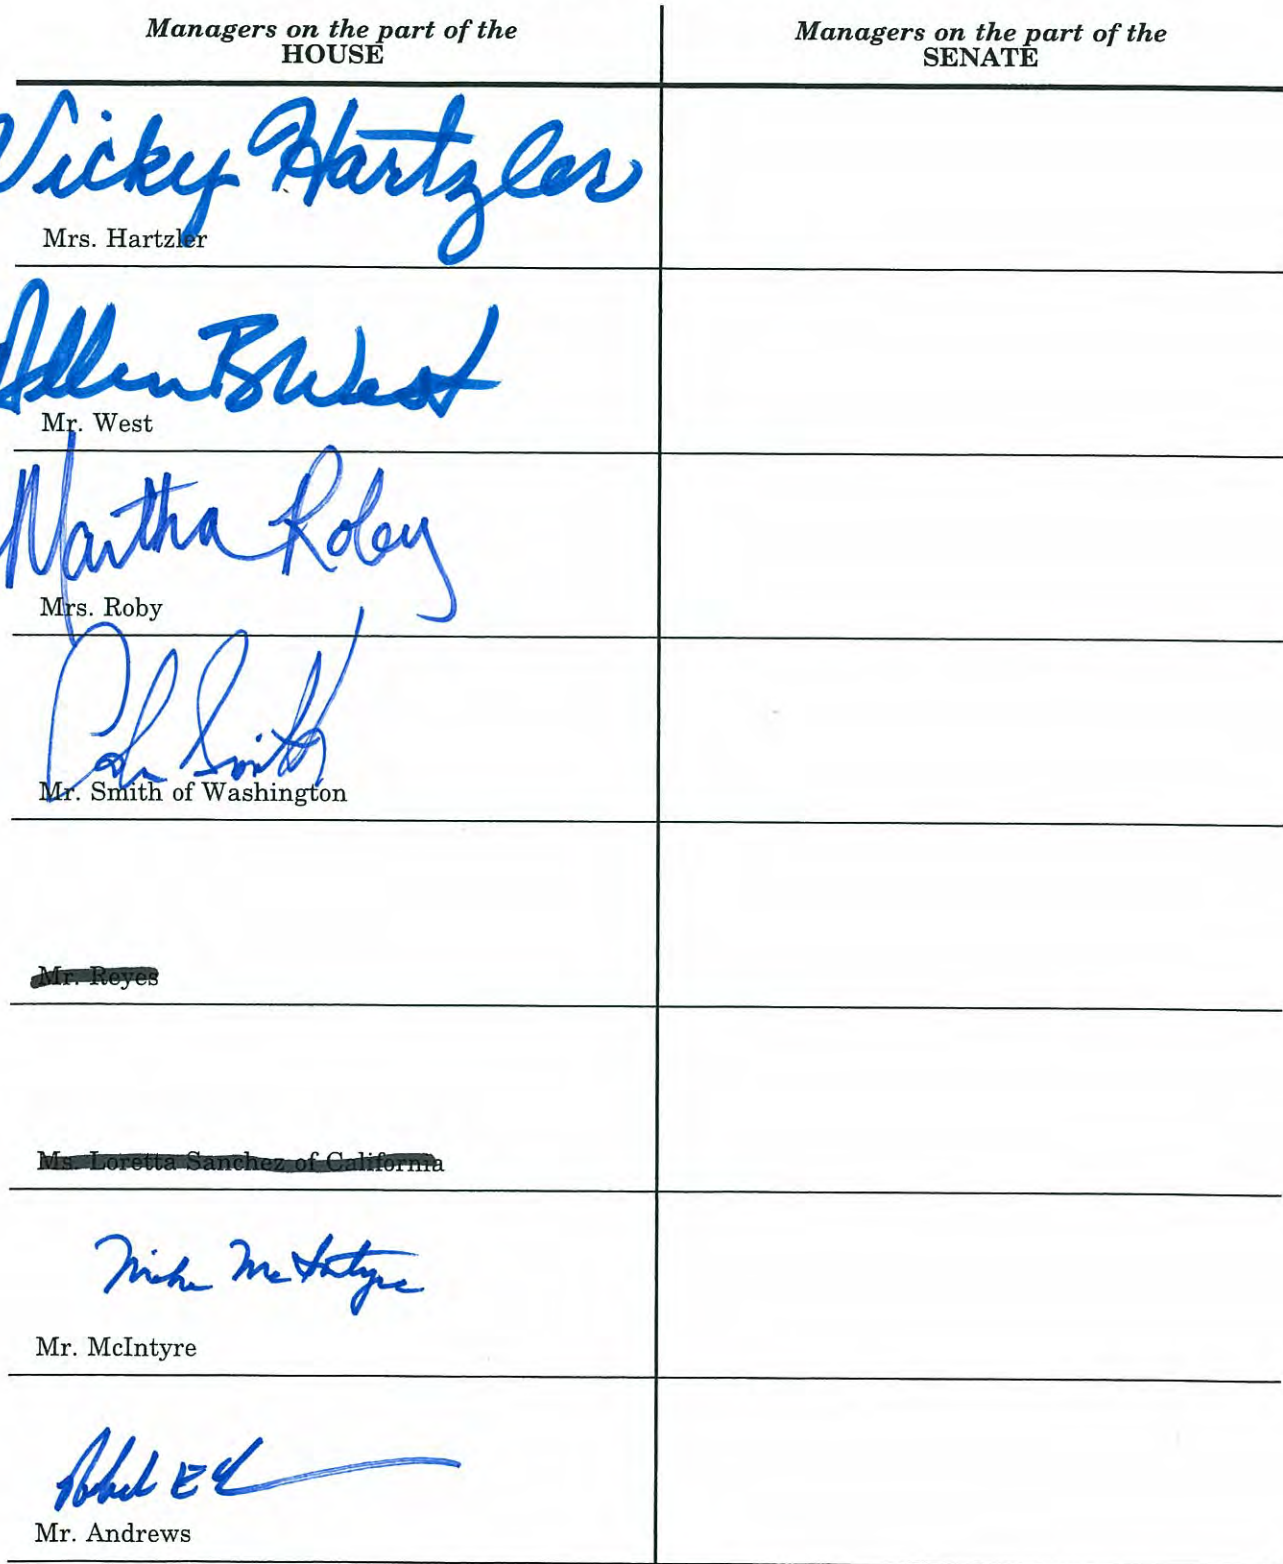 Managers on the part of the
HOUSE
Managers on the part of the
SENATE
Vicky Hartzler
Mrs. Hartzler
Allen B West
Mr. West
Martha Roby
Mrs. Roby
Smith
Mr. Smith of Washington
Mr. Reyes
Ms. Loretta Sanchez of California
Mike McIntyre
Mr. McIntyre
Mr. Andrews